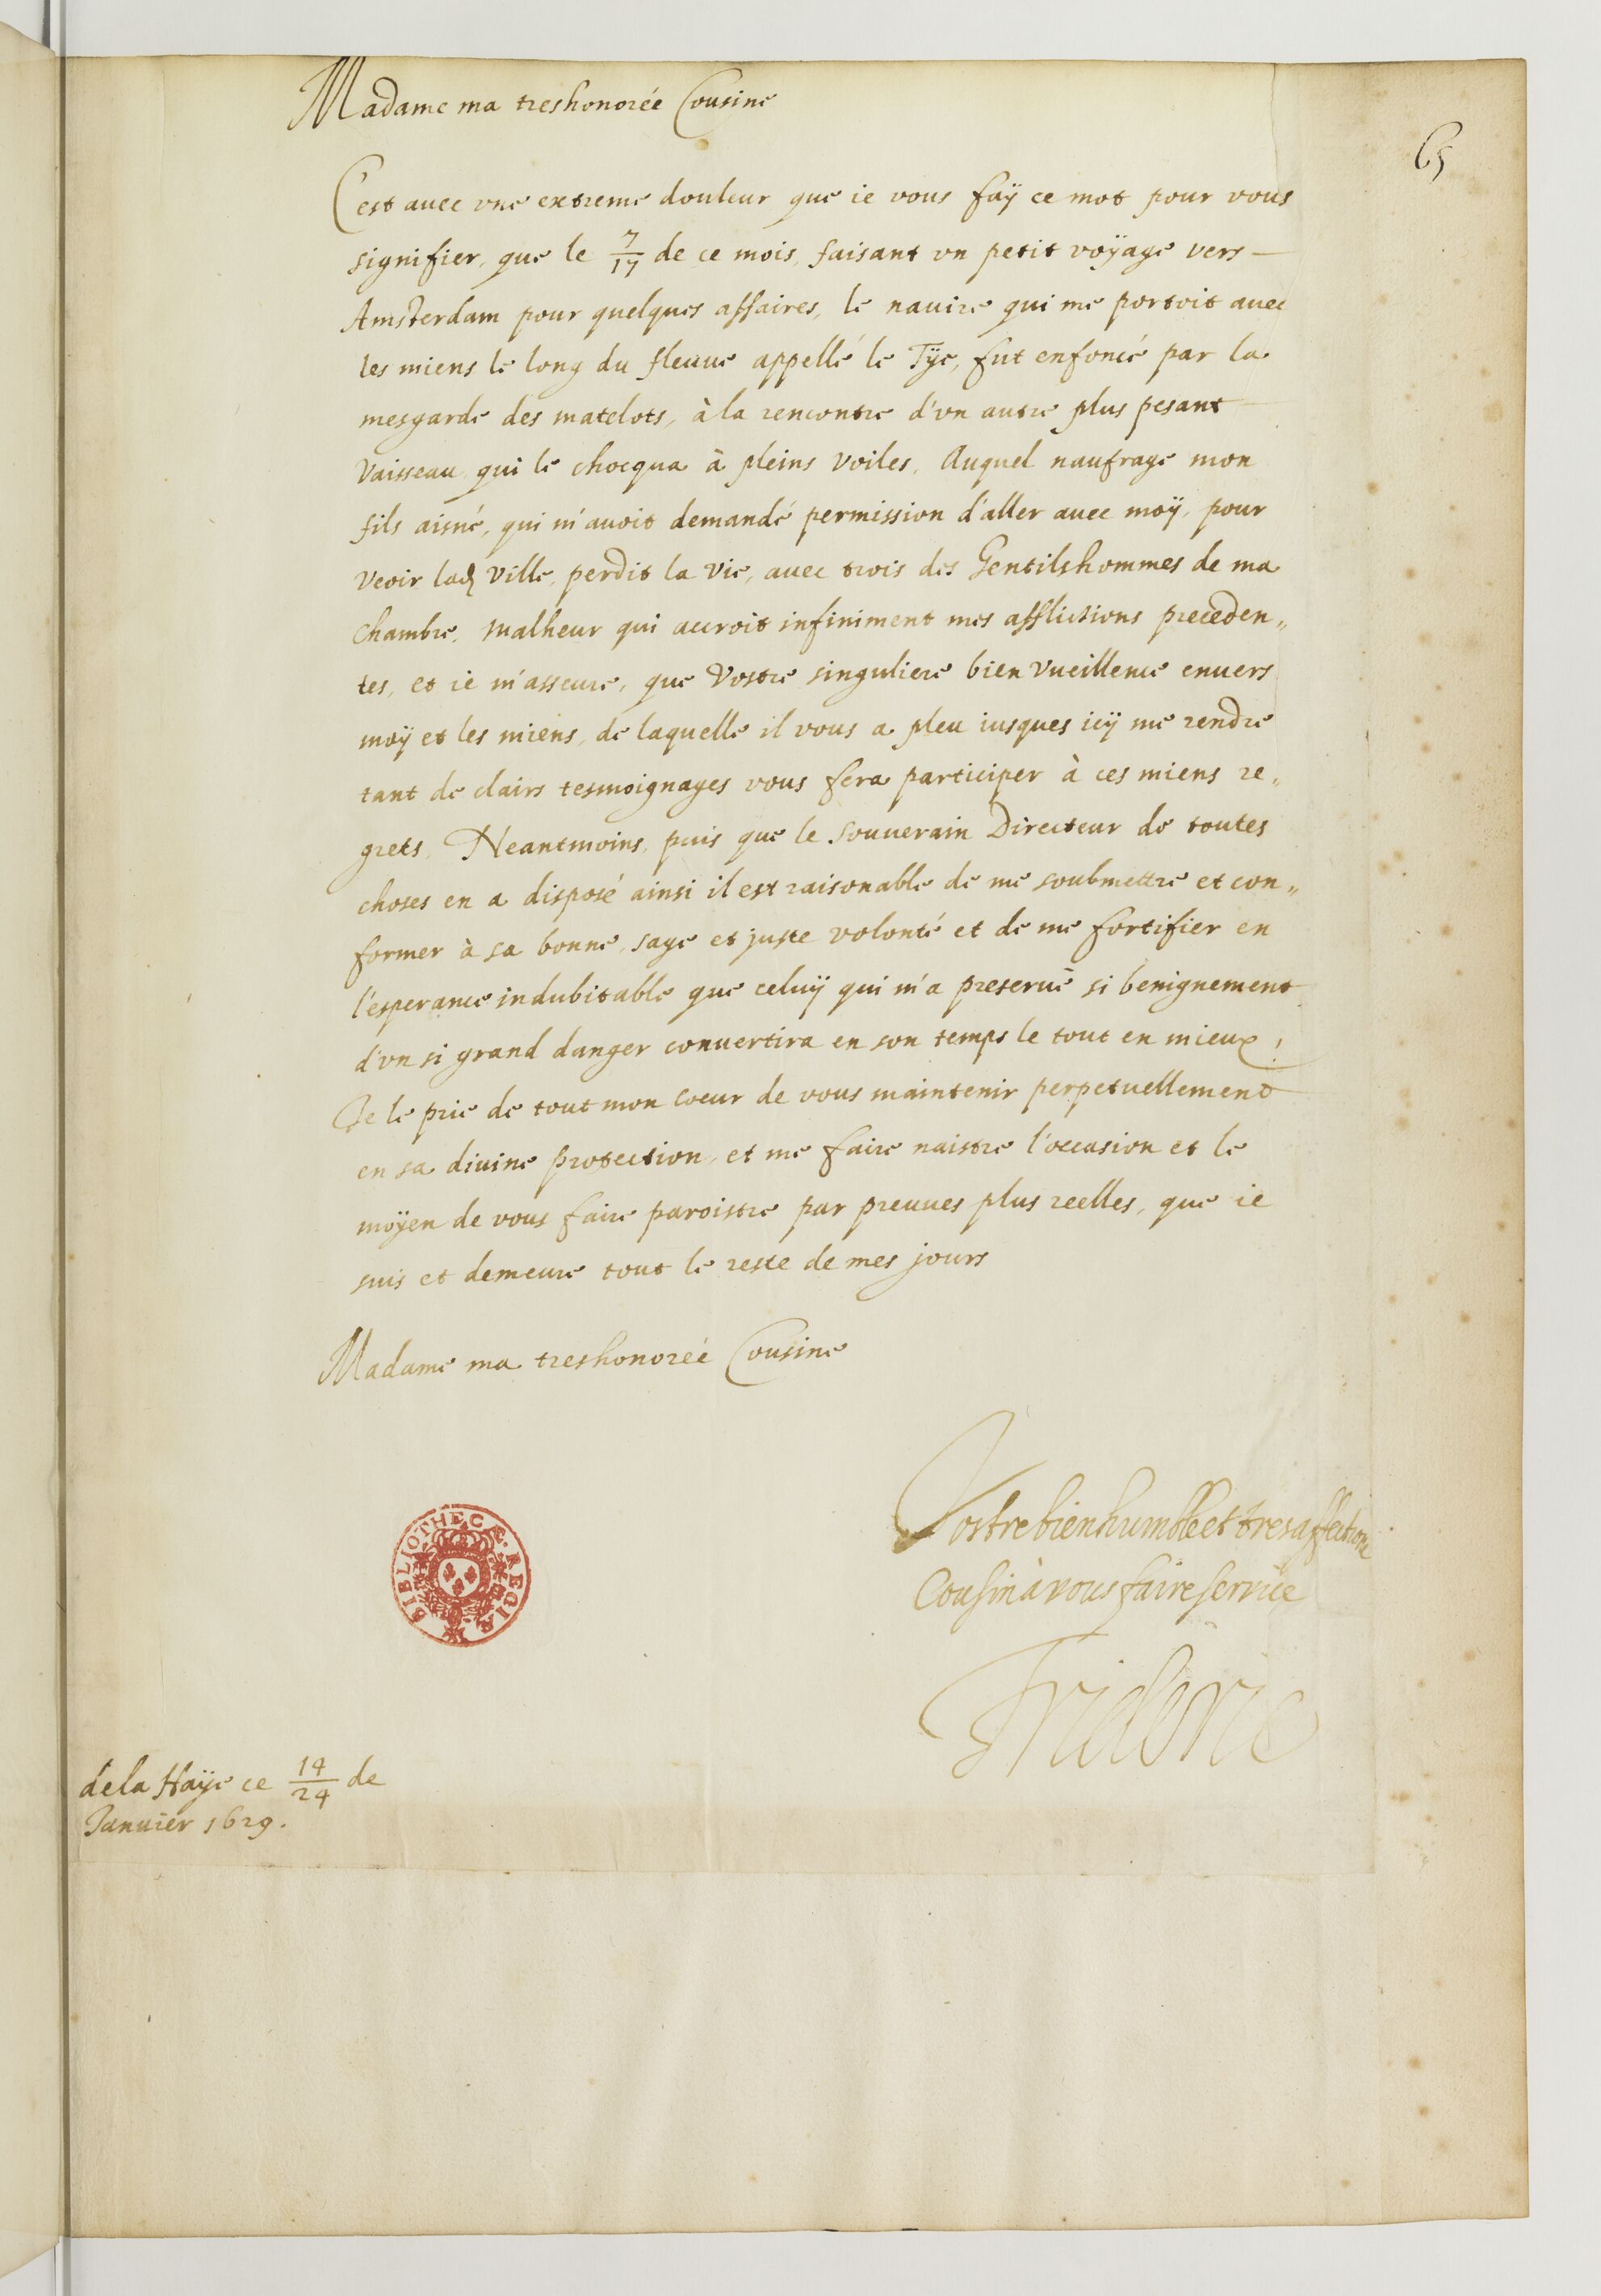 65
Madame ma treshonorée Cousine
C'est auec vne extreme douleur que ie vous faÿ ce mot pour vous
signifier, que le 7/17 de ce mois, faisant vn petit voÿage vers
Amsterdam pour quelques affaires, le nauire qui me portoit auec
les miens le long du fleuue appellé le Tÿe, fut enfoncé par la
mesgarde des matelots, à la rencontre d'vn autre plus pesant
Vaisseau qui le chocqua à pleins voiles. Auquel naufrage mon
fils aisné, qui m'auoit demandé permission d'aller auec moÿ, pour
veoir lad ville, perdit la vie, auec trois des Gentilshommes de ma
chambre, malheur qui accroit infiniment mes afflictions preceden„
tes, et ie m'asseure, que Vostre singuliere bien vueillence enuers
moÿ et les miens, de laquelle il vous a pleu iusques icÿ me rendre
tant de clairs tesmoignages vous fera participer à ces miens re„
grets. Neantmoins, puis que le souuerain Directeur de toutes
choses en a disposé ainsi il est raisonable de me soubmettre et con„
former à sa bonne, sage et juste volonté et de me fortifier en
l'esperance indubitable que celuÿ qui m'a preserué si benignement
d'vn si grand danger conuertira en son temps le tout en mieux;
Je le prie de tout mon coeur de vous maintenir perpetuellement
en sa diuine protection, et me faire naistre l'occasion et le
moÿen de vous faire paroistre par preuues plus reelles, que ie
suis et demeure tout le reste de mes jours
Madame ma treshonorée Cousine
Vostre bien humble et tres affectioné
Cousin à vous faire service
Frideric
BIBLIOTHECÆ REGIÆ
de la Haÿe ce 14/24 de
Januier 1629.